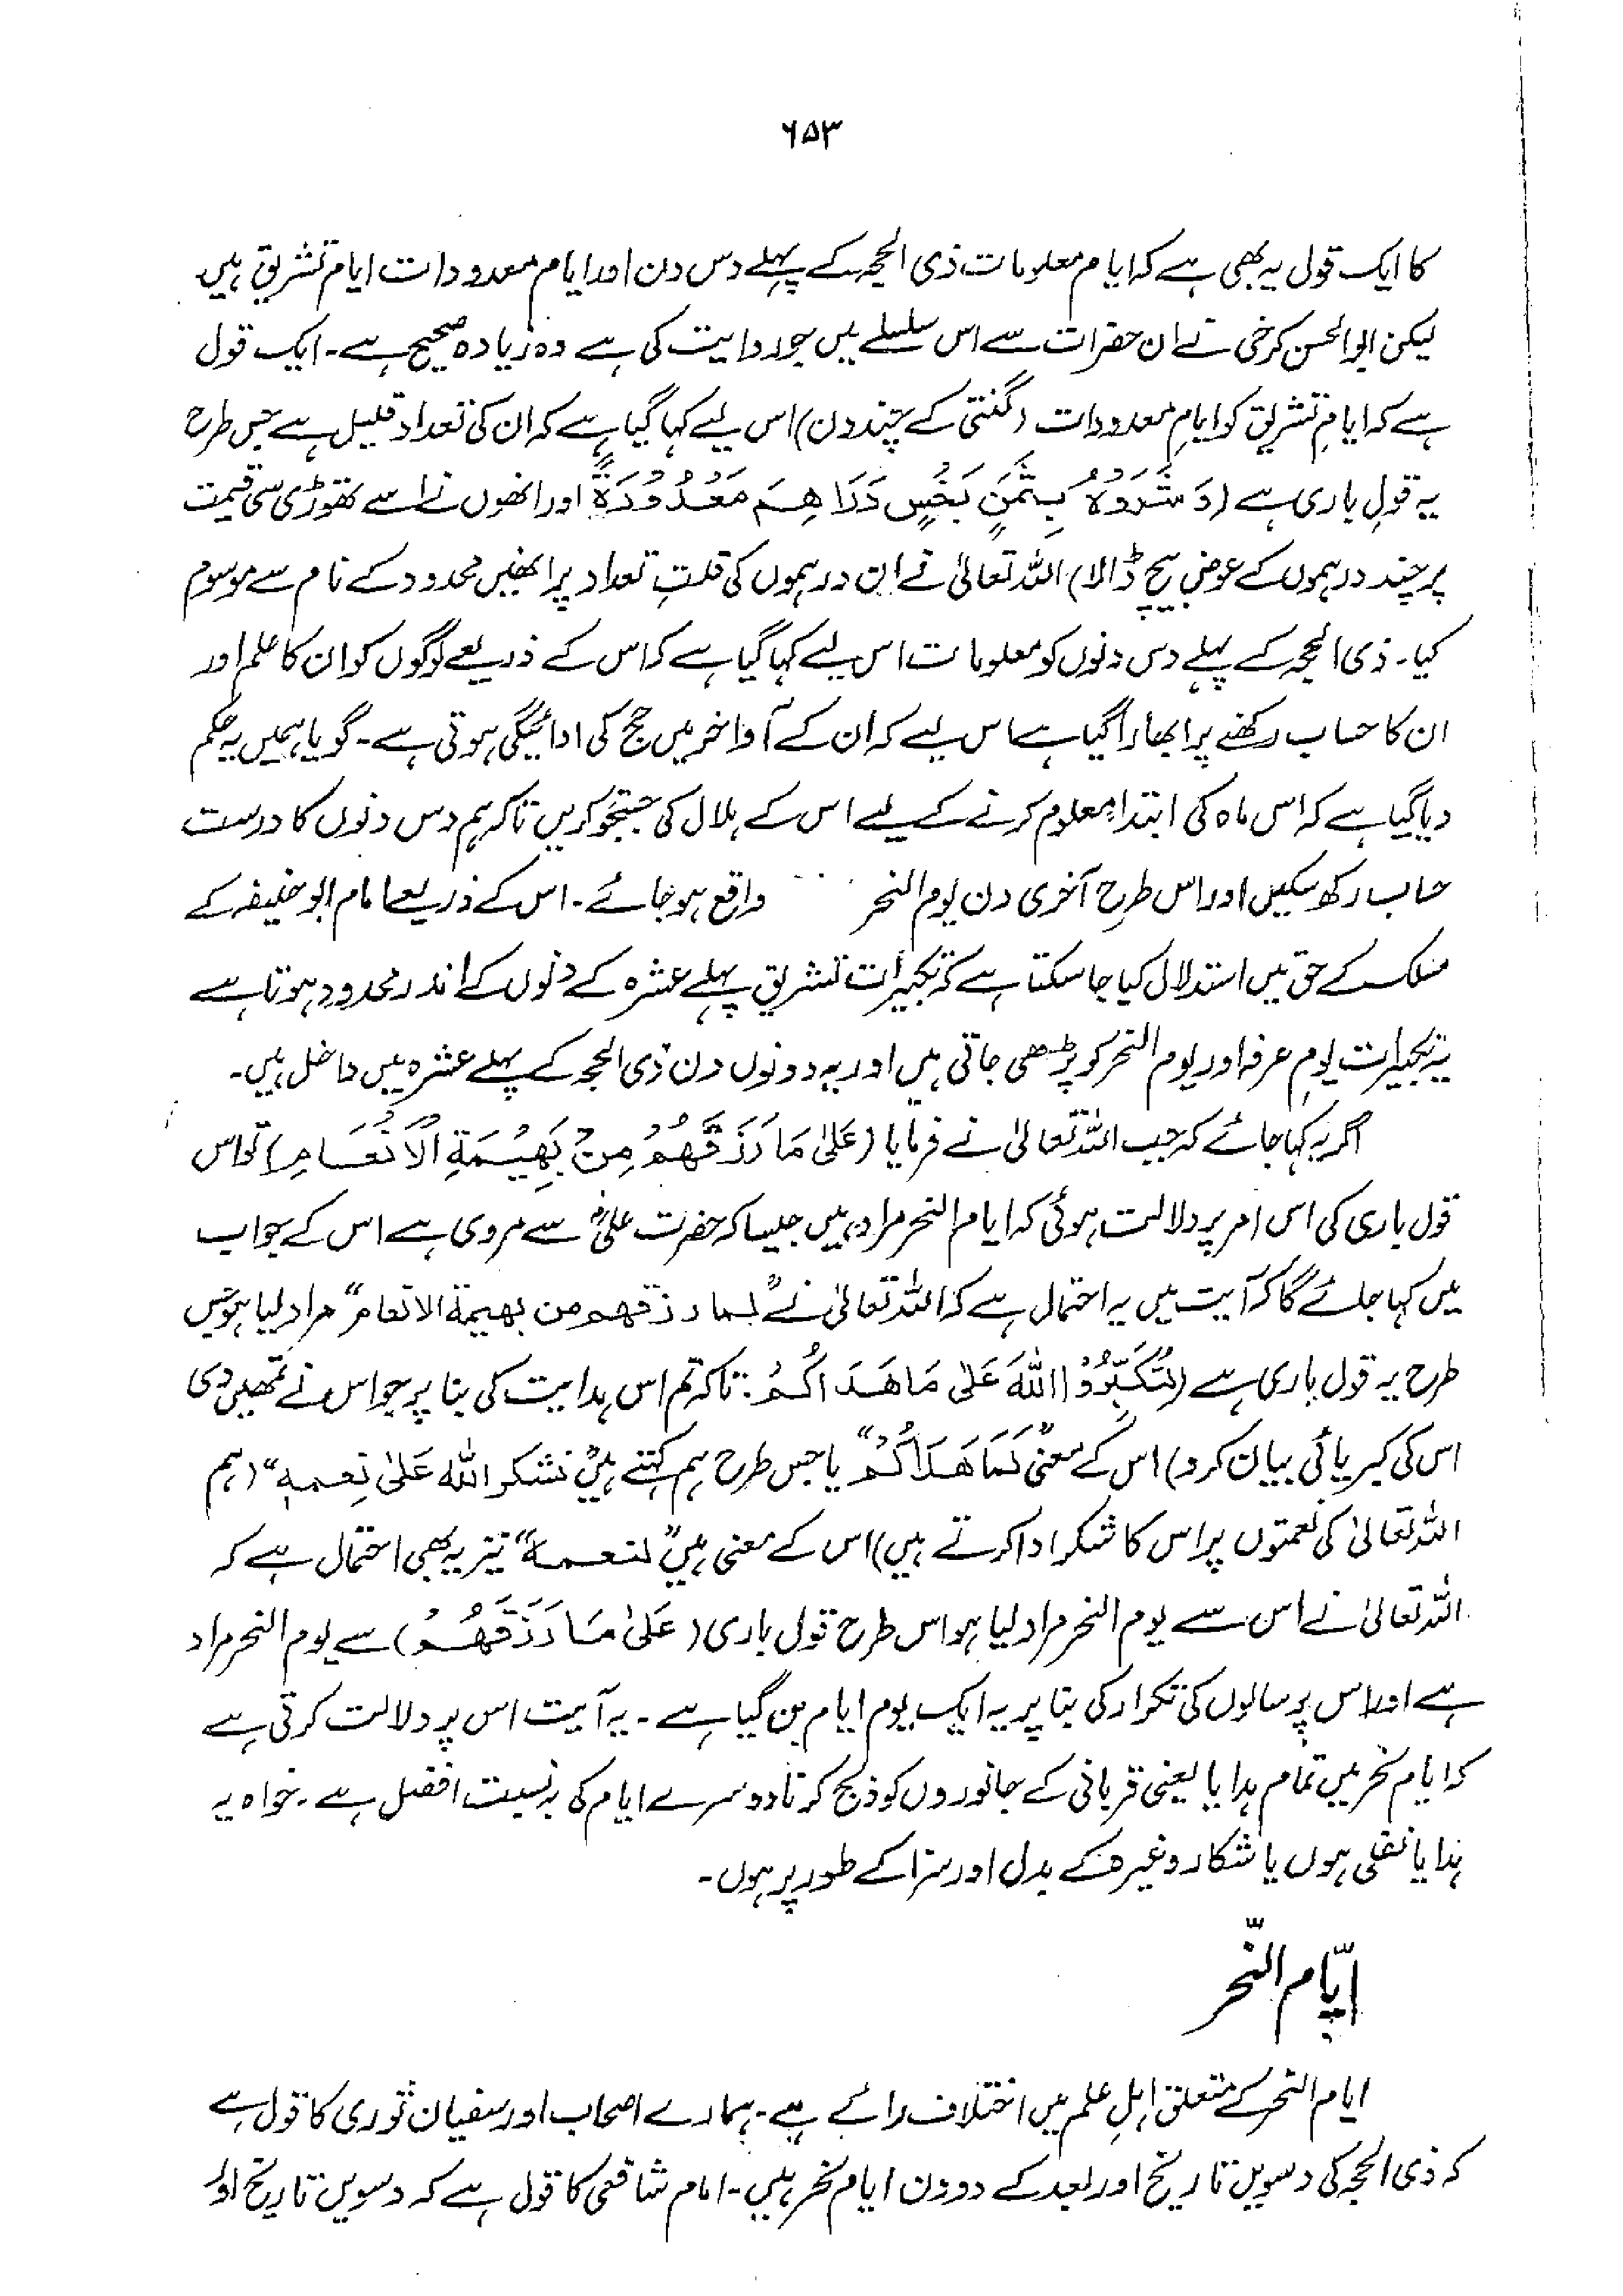 ۶۵۳
کا ایک قول یہ بھی ہے کہ ایام معلومات ذی الحجہ کے پہلے دس دن اور ایام معدودات ایام تشریق ہیں
لیکن ابوالحسن کرخی نے ان حضرات سے اس سلسلے میں جو روایت کی ہے وہ زیادہ صحیح ہے۔ ایک قول
ہے کہ ایامِ تشریق کو ایامِ معدودات (گنتی کے چند دن) اس لیے کہا گیا ہے کہ ان کی تعداد قلیل ہے جس طرح
یہ قولِ باری ہے (وَشَرَوْهُ بِثَمَنٍ بَخْسٍ دَرَاهِمَ مَعْدُوْدَةٍ اور انھوں نے اسے تھوڑی سی قیمت
پر چند درہموں کے عوض بیچ ڈالا) اللہ تعالیٰ نے ان درہموں کی قلتِ تعداد پر انھیں محدود کے نام سے موسوم
کیا۔ ذی الحجہ کے پہلے دس دنوں کو معلومات اس لیے کہا گیا ہے کہ اس کے ذریعے لوگوں کو ان کا علم اور
ان کا حساب رکھنے پر ابھارا گیا ہے اس لیے کہ ان کے آواخر میں حج کی ادائیگی ہوتی ہے۔ گویا ہمیں یہ حکم
دیا گیا ہے کہ اس ماہ کی ابتدا معلوم کرنے کے لیے اس کے ہلال کی جستجو کریں تاکہ ہم دس دنوں کا درست
حساب رکھ سکیں اور اس طرح آخری دن یوم النحر واقع ہو جائے۔ اس کے ذریعے امام ابو حنیفہ کے
مسلک کے حق میں استدلال کیا جا سکتا ہے کہ تکبیرات تشریق پہلے عشرہ کے دنوں کے اندر محدود ہوتا ہے
یہ تکبیرات یومِ عرفہ اور یوم النحر کو پڑھی جاتی ہیں اور یہ دونوں دن ذی الحجہ کے پہلے عشرہ میں داخل ہیں۔
اگر یہ کہا جائے کہ جب اللہ تعالیٰ نے فرمایا (عَلٰی مَا رَزَقَهُمْ مِنْ بَهِيْمَةِ الْاَنْعَامِ) تو اس
قول باری کی اس امر پر دلالت ہوئی کہ ایام النحر مراد ہیں جیسا کہ حضرت علیؓ سے مروی ہے اس کے جواب
میں کہا جائے گا کہ آیت میں یہ احتمال ہے کہ اللہ تعالیٰ نے "لما رزقهم من بهيمة الانعام" مراد لیا ہو جس
طرح یہ قول باری ہے (لِتُكَبِّرُوْا اللّٰهَ عَلٰی مَا هَدَاكُمْ: تاکہ تم اس ہدایت کی بنا پر جو اس نے تمھیں دی
اس کی کبریائی بیان کرو) اس کے معنی "لَمَا هَدَاكُمْ" یا جس طرح ہم کہتے ہیں "نشکر اللّٰہ عَلٰی نِعمہٖ" (ہم
اللہ تعالیٰ کی نعمتوں پر اس کا شکر ادا کرتے ہیں) اس کے معنی ہیں "لنعمه" نیز یہ بھی احتمال ہے کہ
اللہ تعالیٰ نے اس سے یوم النحر مراد لیا ہو اس طرح قول باری (عَلٰی مَا رَزَقَهُمْ) سے یوم النحر مراد
ہے اور اس پر سالوں کی تکرار کی بنا پر یہ ایک یوم ایام بن گیا ہے۔ یہ آیت اس پر دلالت کرتی ہے
کہ ایام نحر میں تمام ہدایا یعنی قربانی کے جانوروں کو ذبح کرنا دوسرے ایام کی بہ نسبت افضل ہے۔ خواہ یہ
ہدایا نفلی ہوں یا شکار وغیرہ کے بدل اور سزا کے طور پر ہوں۔
ایّام النّحر
ایام النحر کے متعلق اہلِ علم میں اختلاف رائے ہے۔ ہمارے اصحاب اور سفیان ثوری کا قول ہے
کہ ذی الحجہ کی دسویں تاریخ اور بعد کے دو دن ایام نحر ہیں۔ امام شافعی کا قول ہے کہ دسویں تاریخ اور